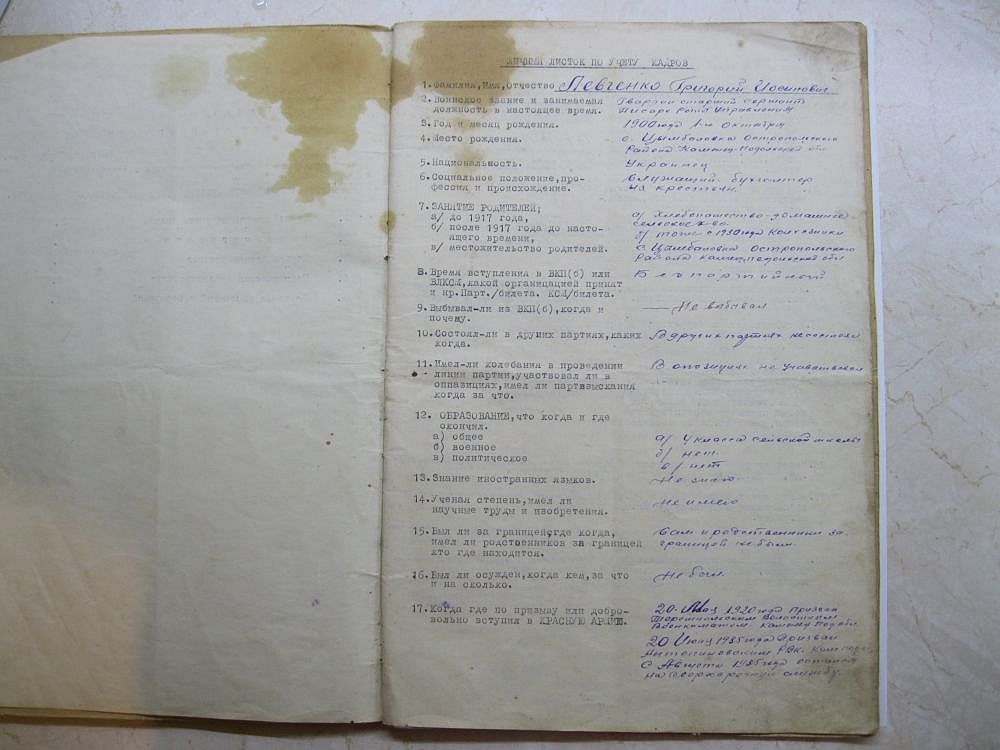 ЛИЧНЫЙ ЛИСТОК ПО УЧЕТУ КАДРОВ
1. Фамилия, Имя, Отчество Левченко Григорий Иосипович
2. Воинское звание и занимаемая должность в настоящее время. Гвардии старший сержант
Писарь роты управления
3. Год и месяц рождения. 1900 года 1-го Октября
4. Место рождения. с. Цымбаловка Остропольского
Района Каменец-Подольской обл
5. Национальность. Украинец
6. Социальное положение, про-
фессия и происхождение. Служащий-бухгалтер
из крестьян.
7. ЗАНЯТИЕ РОДИТЕЛЕЙ;
а/ до 1917 года, а) Хлебопашество-домашнее
сельское х-во.
б/ после 1917 года до насто-
ящего времени, б) тоже с 1930 года Колхозники
в/ местожительство родителей. с Цымбаловка Остропольского
района Камен-Подольской обл
8. Время вступления в ВКП(б) или
ВЛКСМ, какой организацией принят
и нр.Парт./билета. КСМ/билета. Безпартийный
9. Выбывал-ли из ВКП(б), когда и
почему. Не выбывал
10. Состоял-ли в других партиях, каких
когда. В других партиях не состоял
11. Имел-ли колебания в проведении
линии партии, участвовал ли в
оппазициях, имел ли партвзыскания
когда за что. В опозиции не учавствовал
12. ОБРАЗОВАНИЕ, что когда и где
окончил.
а) общее а/ 4 класса сельской школы
б) военное б/ нет.
в) политическое в/ нет
13. Знание иностранных языков. Не знаю
14. Ученая степень, имел ли
научные труды и изобретения. не имею
15. Был ли за границей, где когда,
имел ли родственников за границей
кто где находится. Сам и родственники за
границей не были.
16. Был ли осужден, когда кем, за что
и на сколько. Не был.
17. Когда где по призыву или добро-
вольно вступил в КРАСНУЮ АРМИЮ. 20. 1920 года призван
Волостным
Военкоматом
20 Июня года Призван
РВК.
С Августа года остался
на Сверхсрочную службу.